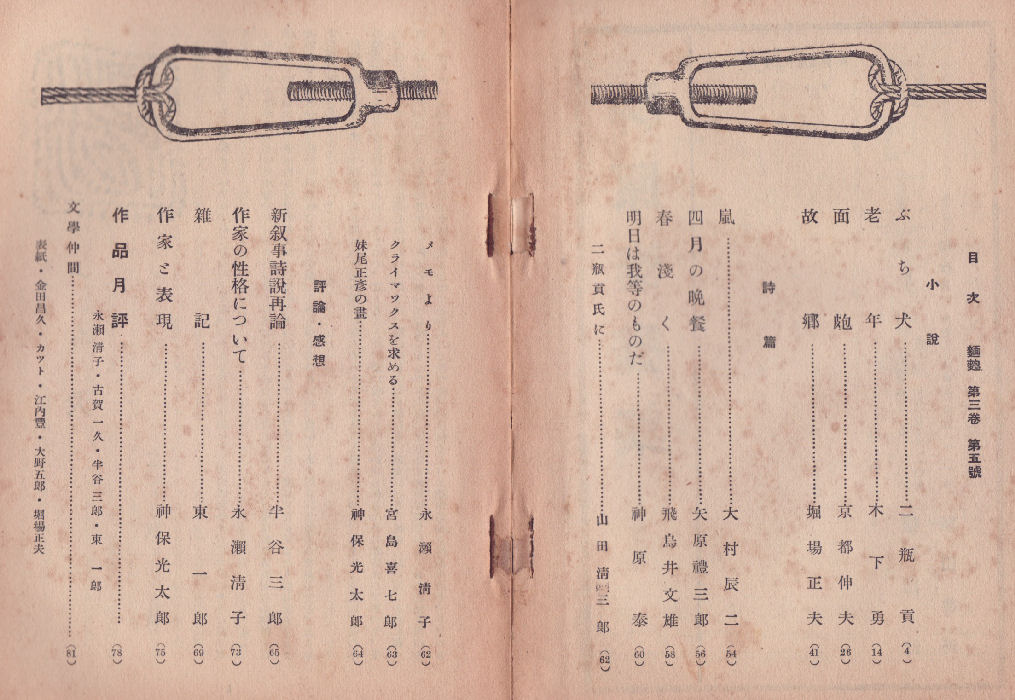 目次　麵麭　第三卷　第五號
小說
ぶち犬……二瓶貢（4）
老年……木下勇（14）
面皰……京都伸夫（26）
故鄕……堀場正夫（41）
詩篇
嵐……大村辰二（54）
四月の晩餐……矢原禮三郎（56）
春淺く……飛鳥井文雄（58）
明日は我等のものだ……神原泰（60）
二瓶貢氏に……山田淸三郎（62）
メモより……永瀨淸子（62）
クライマツクスを求める……宮島喜七郎（63）
妹尾正彥の畫……神保光太郎（64）
評論・感想
新叙事詩說再論……半谷三郎（65）
作家の性格について……永瀨淸子（73）
雜記……東一郎（69）
作家と表現……神保光太郎（75）
作品月評……（78）
永瀨淸子・古賀一久・半谷三郎・東一郎
文學仲間……（81）
表紙・金田昌久・カツト・江內豐・大野五郎・堀場正夫